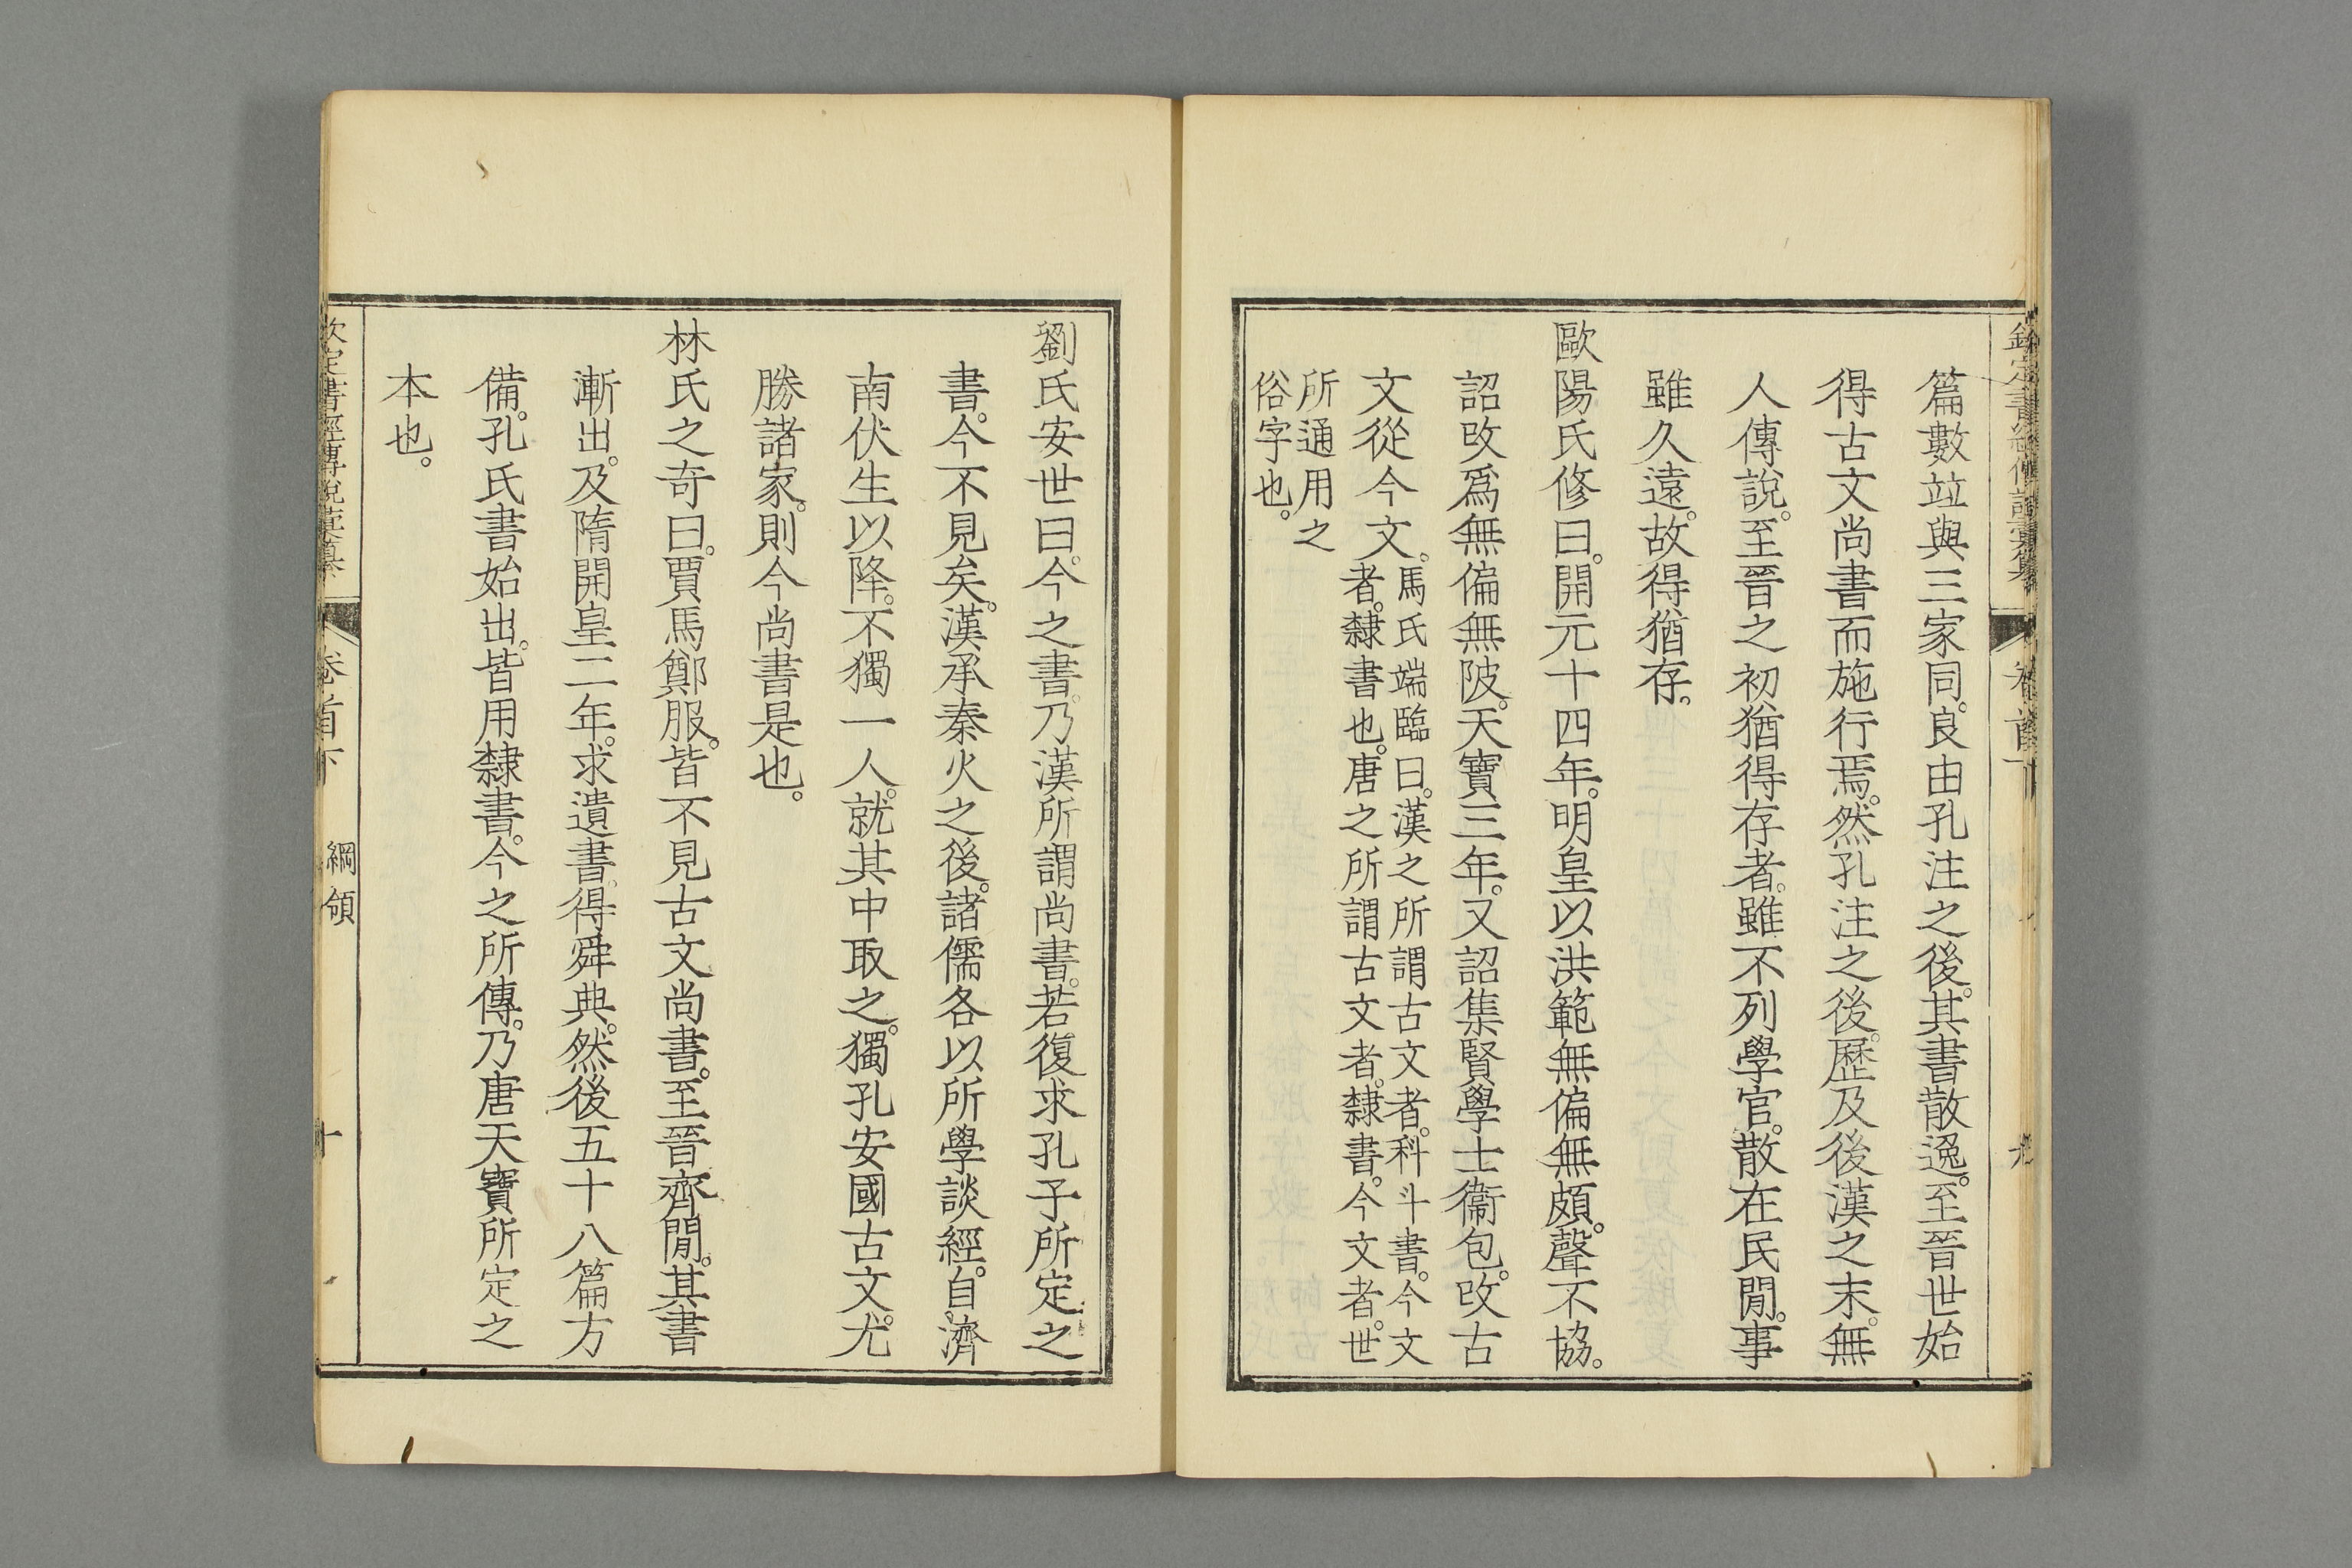 篇數竝與三家同。良由孔注之後。其書散逸。至晉世始
得古文尚書而施行焉。然孔注之後。歷及後漢之末。無
人傳說。至晉之初猶得存者。雖不列學官。散在民閒。事
雖久遠。故得猶存。
歐陽氏修曰。開元十四年。明皇以洪範無偏無頗。聲不協。
詔改爲無偏無陂。天寶三年。又詔集賢學士衞包。改古
文從今文。
馬氏端臨曰。漢之所謂古文者。科斗書。今文
者。隸書也。唐之所謂古文者。隸書。今文者。世
所通用之
俗字也。
劉氏安世曰。今之書。乃漢所謂尚書。若復求孔子所定之
書。今不見矣。漢承秦火之後。諸儒各以所學談經。自濟
南伏生以降。不獨一人。就其中取之。獨孔安國古文。尤
勝諸家。則今尚書是也。
林氏之奇曰。賈馬鄭服。皆不見古文尚書。至晉齊閒。其書
漸出。及隋開皇二年。求遺書。得舜典。然後五十八篇方
備。孔氏書始出。皆用隸書。今之所傳。乃唐天寶所定之
本也。
欽定書經傳說彙纂
卷首下
綱領
十